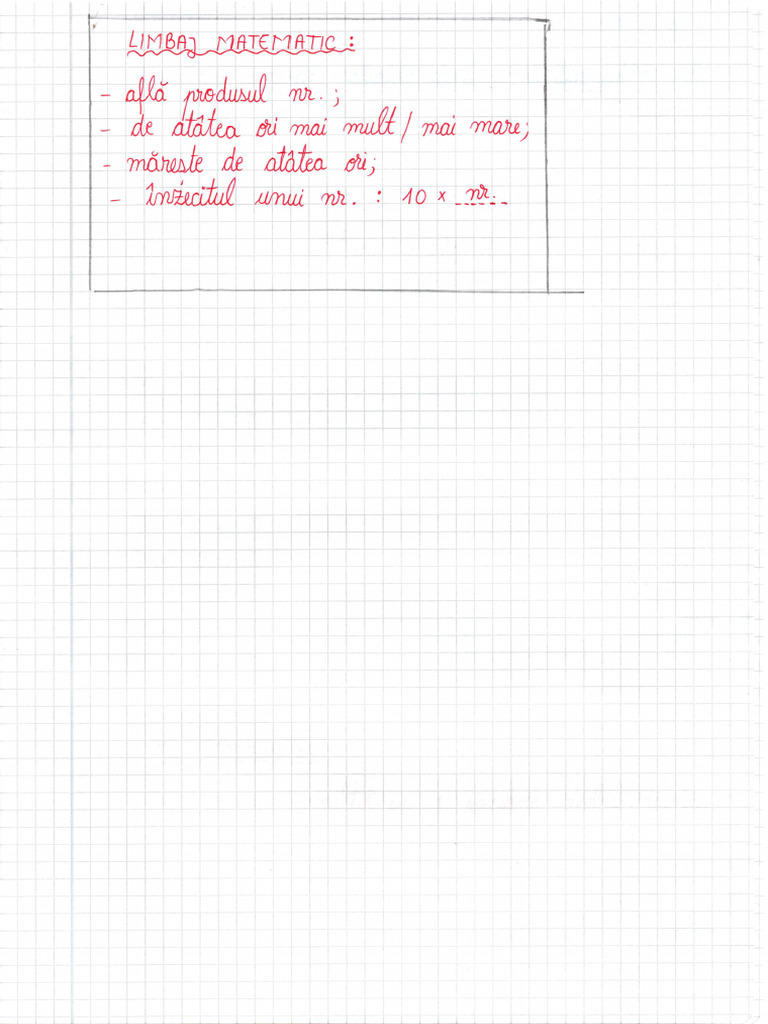 LIMBAJ MATEMATIC :
- află produsul nr. ;
- de atâtea ori mai mult / mai mare;
- mărește de atâtea ori;
- înzecitul unui nr. : 10 x nr.